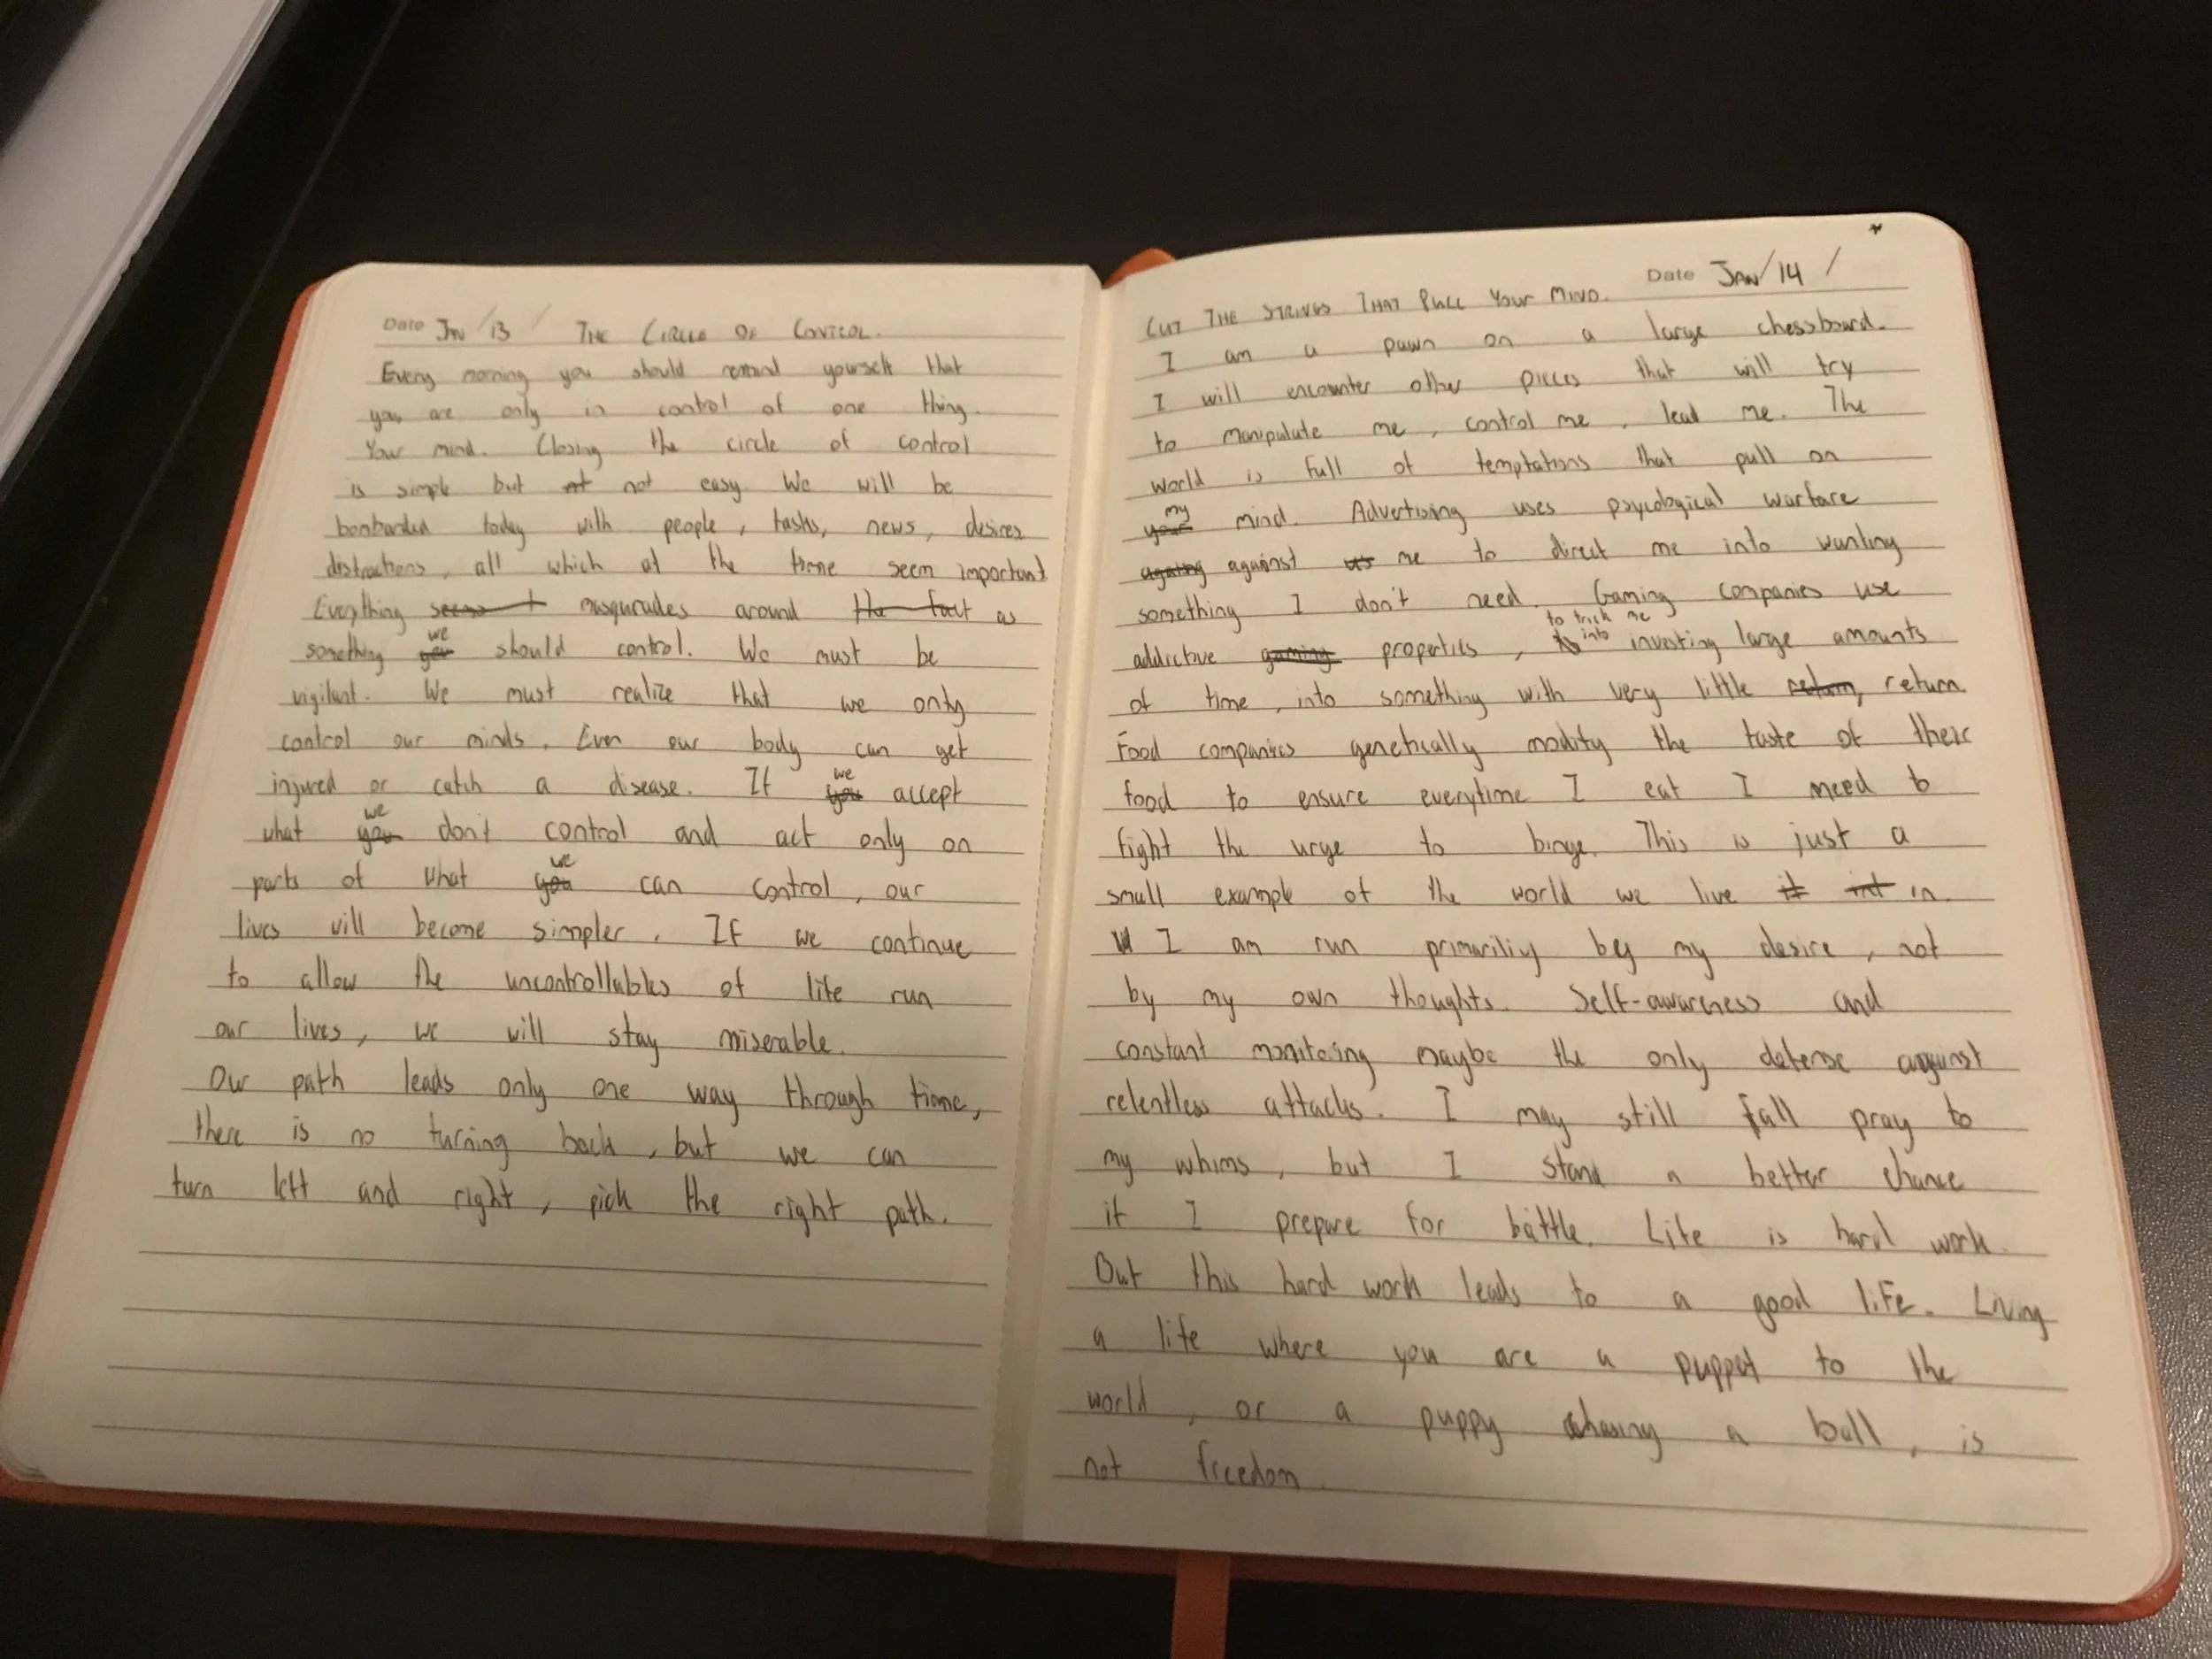 Date Jan / 13 / THE CIRCLE OF CONTROL.
Every morning you should remind yourself that
you are only in control of one thing.
Your mind. Closing the circle of control
is simple but not easy. We will be
bombarded today with people, tasks, news, desires
distractions, all which at the time seem important.
Everything masqurades around as
something we should control. We must be
vigilant. We must realize that we only
control our minds. Even our body can get
injured or catch a disease. If we accept
what we don't control and act only on
parts of what we can control, our
lives will become simpler. If we continue
to allow the uncontrollables of life run
our lives, we will stay miserable.
Our path leads only one way through time,
there is no turning back, but we can
turn left and right, pick the right path.
Date JAN / 14 /
CUT THE STRINGS THAT PULL YOUR MIND.
I am a pawn on a large chessboard.
I will encounter other pieces that will try
to manipulate me, control me, lead me. The
world is full of temptations that pull on
my mind. Advertising uses psycological warfare
against me to direct me into wanting
something I don't need. Gaming companies use
addictive properties, to trick me into investing large amounts
of time, into something with very little return.
Food companies genetically modify the taste of their
food to ensure everytime I eat I need to
fight the urge to binge. This is just a
small example of the world we live in.
I am run primariliy by my desire, not
by my own thoughts. Self-awareness and
constant monitoring maybe the only defense against
relentless attacks. I may still fall pray to
my whims, but I stand a better chance
if I prepare for battle. Life is hard work.
But this hard work leads to a good life. Living
a life where you are a puppet to the
world, or a puppy chasing a ball, is
not freedom.